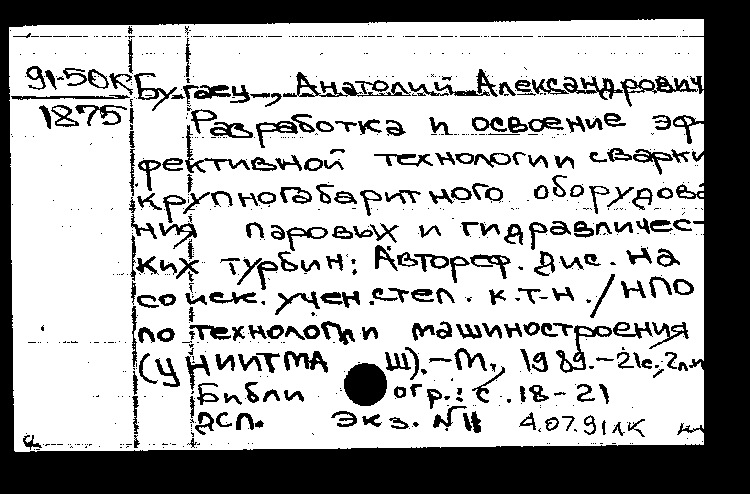 91-50К Бугаец, Анатолий Александрович
1875
Разработка и освоение эф-
фективной технологии сварки
крупногабаритного оборудова
ния паровых и гидравличес-
ких турбин: Автореф. дис. на
соиск. учен.степ. к.т.н./НПО
по технологии машиностроения
(ЦНИИТМАШ).—М., 1989.—21с.,
Библиогр.: с.18-21
ДСП. Экз. № 11 4.07.91